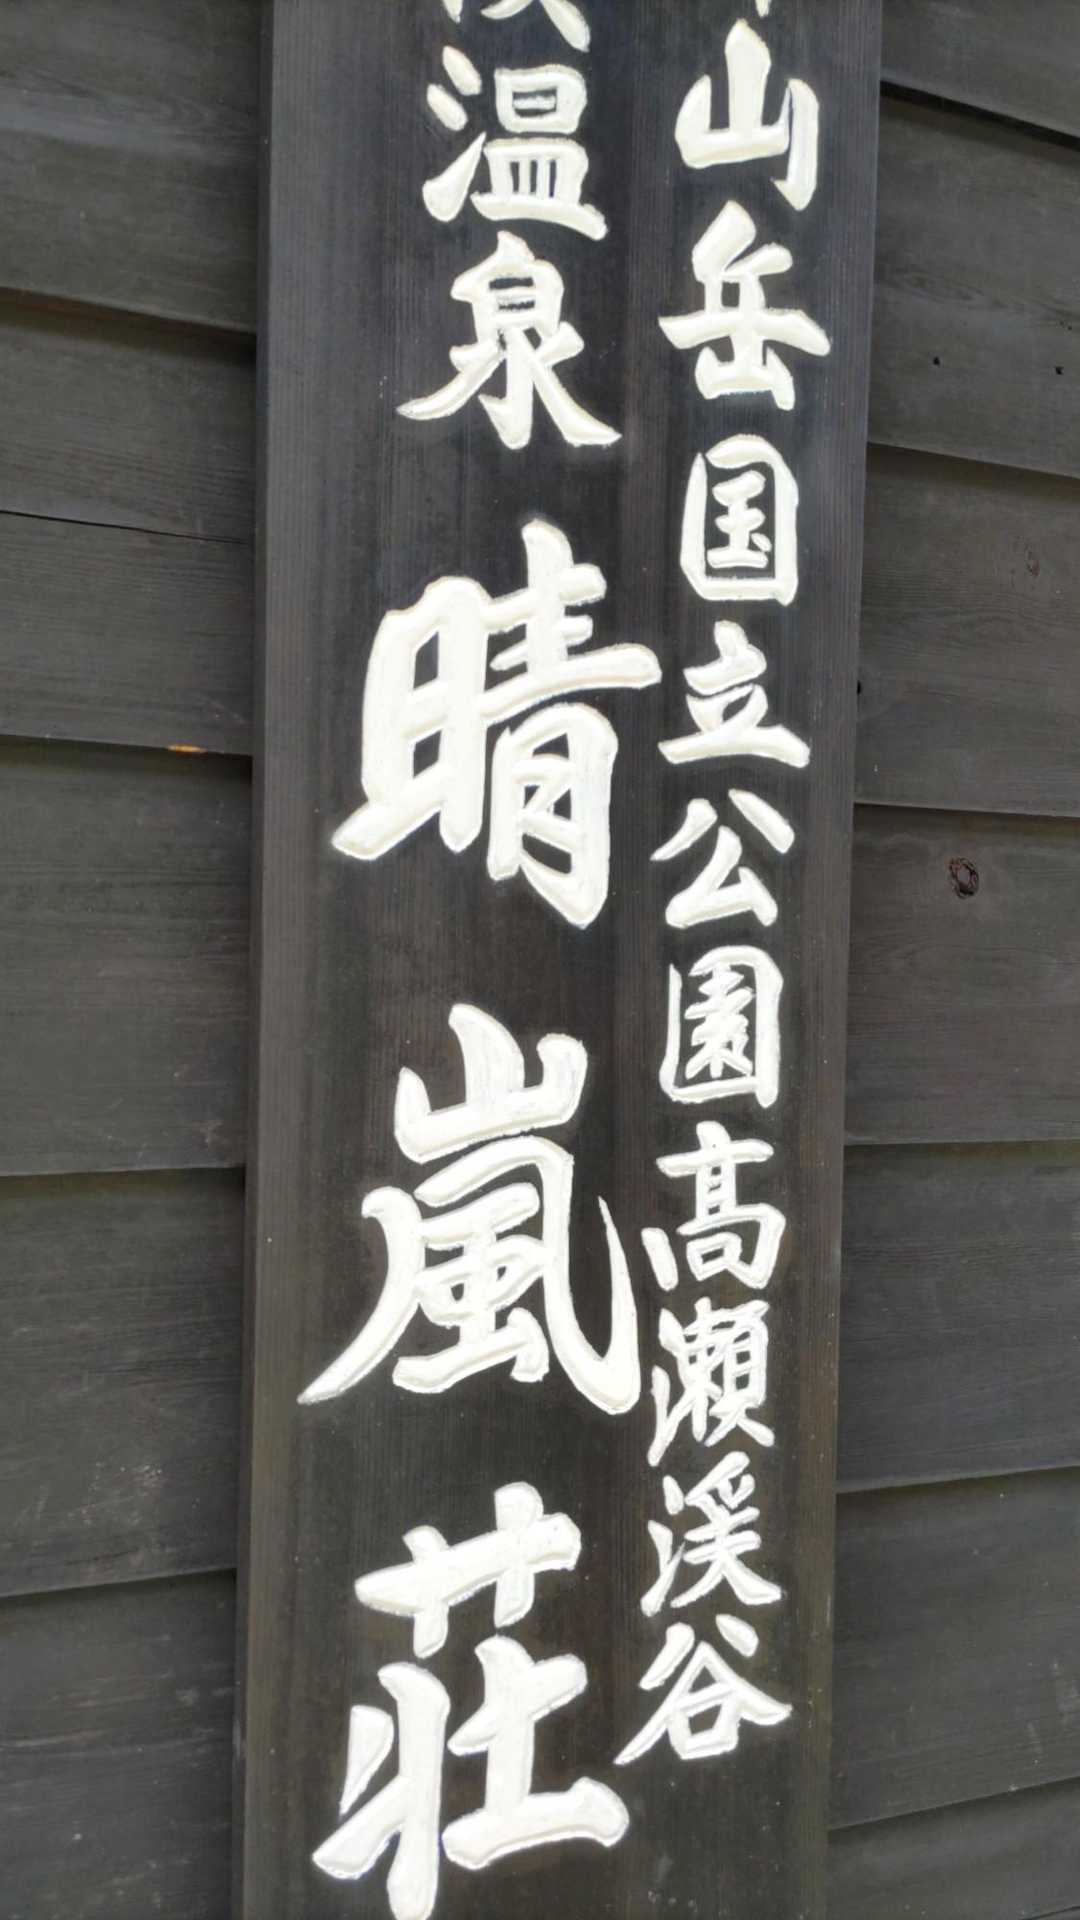 山岳国立公園髙瀬渓谷
温泉 晴嵐荘